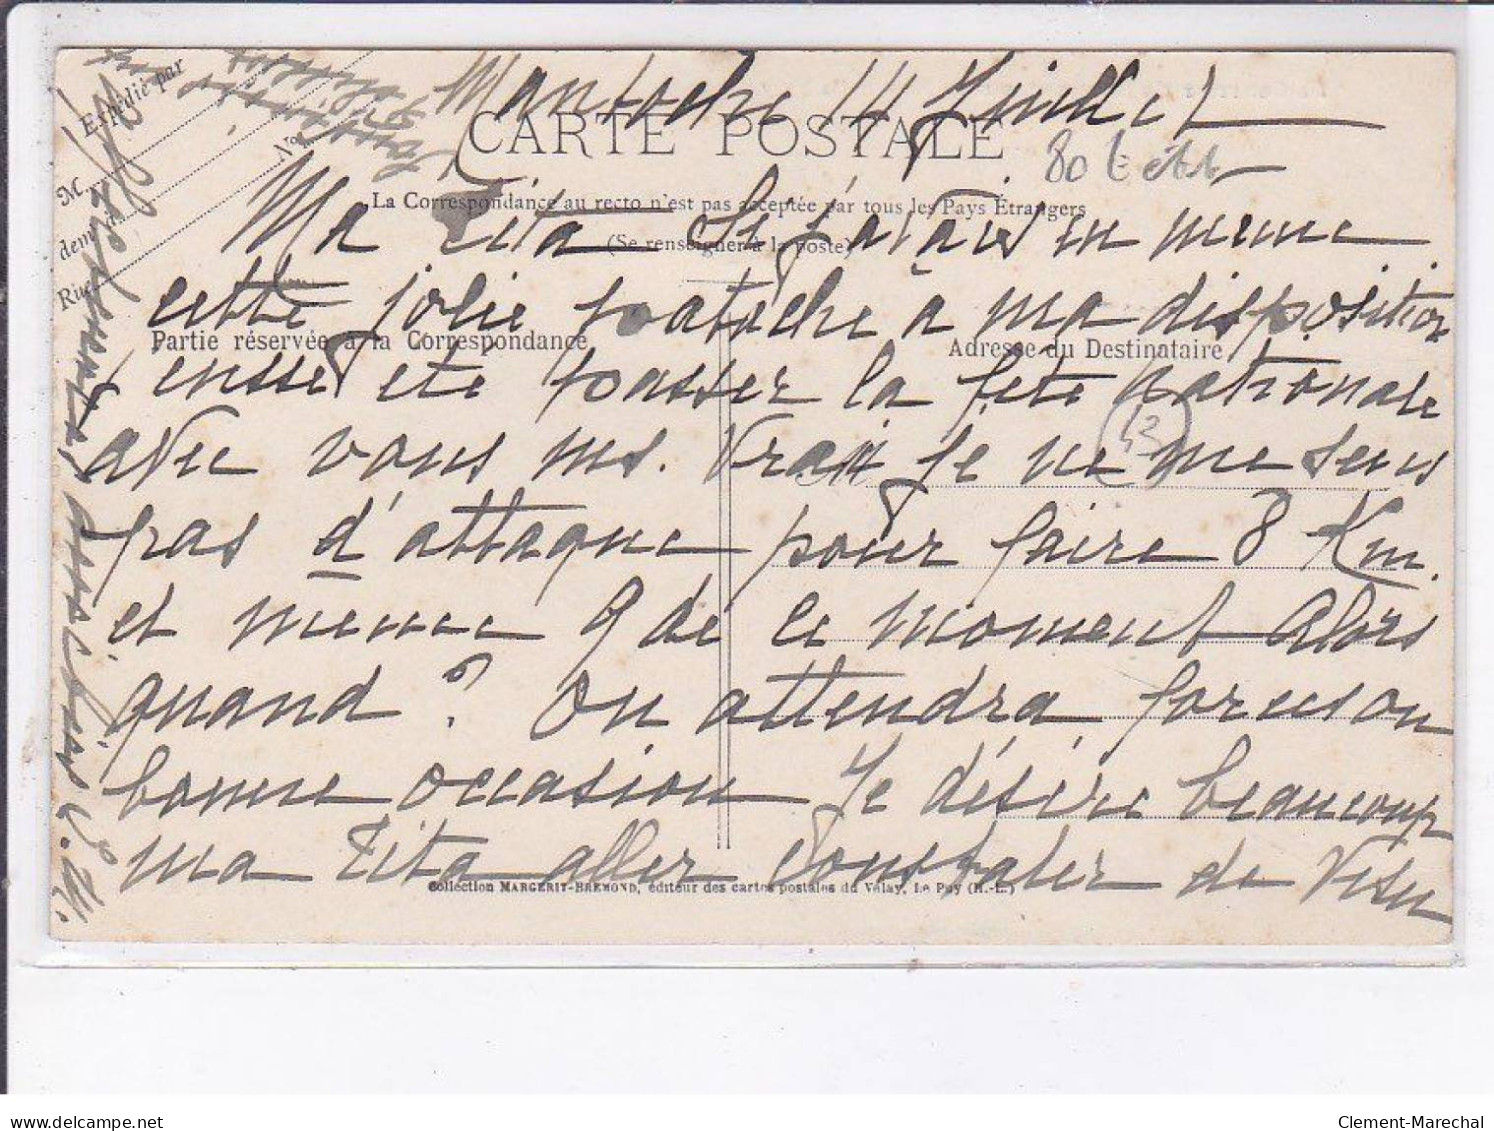 Mantoche 14 Juillet
CARTE POSTALE
80 t
Expédié par
M
demt à
Rue
No
La Correspondance au recto n'est pas acceptée par tous les Pays Étrangers
(Se renseigner à la poste)
Partie réservée à la Correspondance
Adresse du Destinataire
43
Ma Tita Si j'avais eu meme
cette jolie patache à ma disposition
j'eusse ete passer la fete nationale
avec vous ms. Vrai je ne me sens
pas d'attaque pour faire 8 Km.
et meme 9 de ce moment Alors
quand ? On attendra
bonne occasion Je désire beaucoup
ma Tita aller constater de visu
possibles
Collection MARGERIT-BREMOND, éditeur des cartes postales du Velay, Le Puy (H.-L.)
delcampe.net
Clement-Marechal